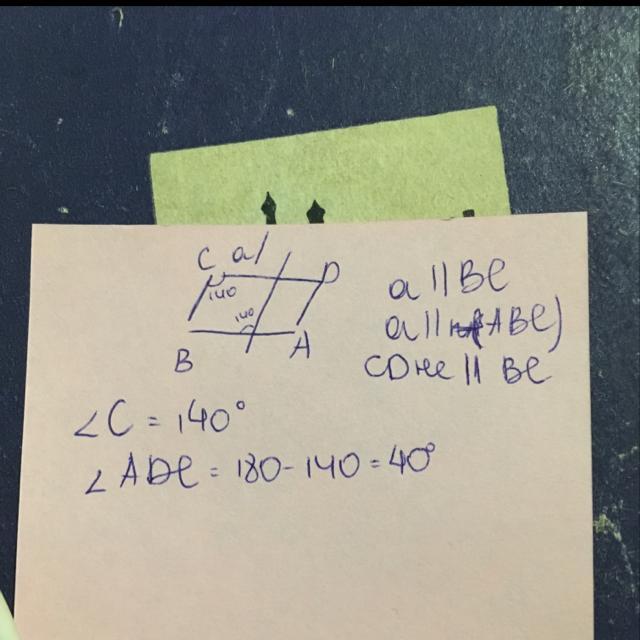 C a
D
140
140
B A
a || BC
a || ABC)
CD не || BC
∠C = 140°
∠ADC = 180 - 140 = 40°